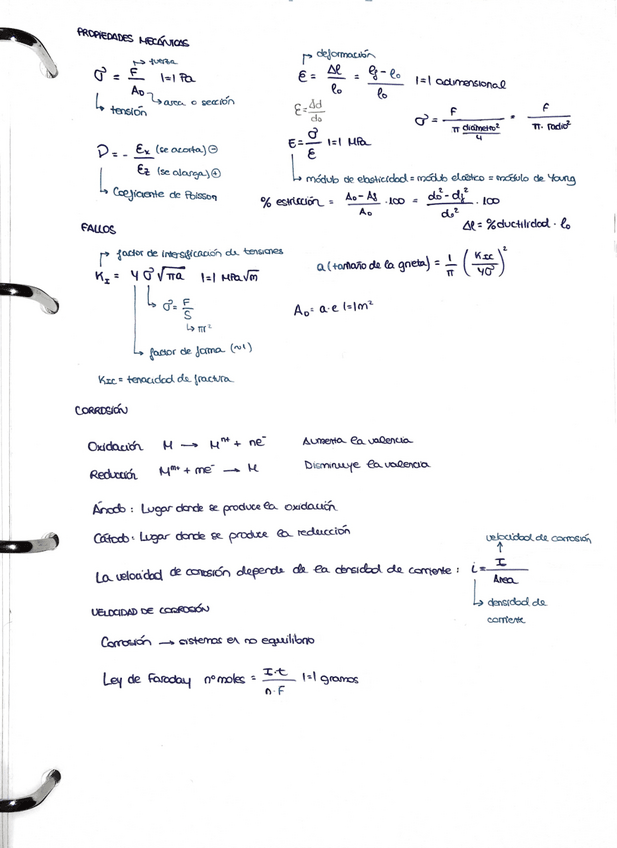 PROPIEDADES MECÁNICAS
↳ fuerza
σ = F / A₀ |=| Pa
↳ area o sección
↳ tensión
↱ deformación
ε = Δl / l₀ = lf - l₀ / l₀ |=| adimensional
ε = Δd / d₀
σ = F / π diámetro² / 4 = F / π · radio²
ν = - εx (se acorta) ⊖ / εz (se alarga) ⊕
↳ Coeficiente de Poisson
E = σ / ε |=| MPa
↳ módulo de elasticidad = módulo elástico = módulo de Young
% estricción = A₀ - Af / A₀ · 100 = d₀² - df² / d₀² · 100
Δl = % ductilidad · l₀
FALLOS
↱ factor de intensificación de tensiones
K_I = Y σ √πa |=| MPa√m
a (tamaño de la grieta) = 1/π (K_IC / Yσ)²
↳ σ = F / S
↳ πr²
A₀ = a · e |=| m²
↳ factor de forma (~1)
K_IC = tenacidad de fractura
CORROSIÓN
Oxidación M → Mⁿ⁺ + ne⁻ Aumenta la valencia
Reducción Mᵐ⁺ + me⁻ → M Disminuye la valencia
Ánodo : Lugar donde se produce la oxidación
Cátodo : Lugar donde se produce la reducción
velocidad de corrosión
La velocidad de corrosión depende de la densidad de corriente : i = I / Área
↳ densidad de
corriente
VELOCIDAD DE CORROSIÓN
Corrosión → sistemas en no equilibrio
Ley de Faraday nº moles = I·t / n·F |=| gramos